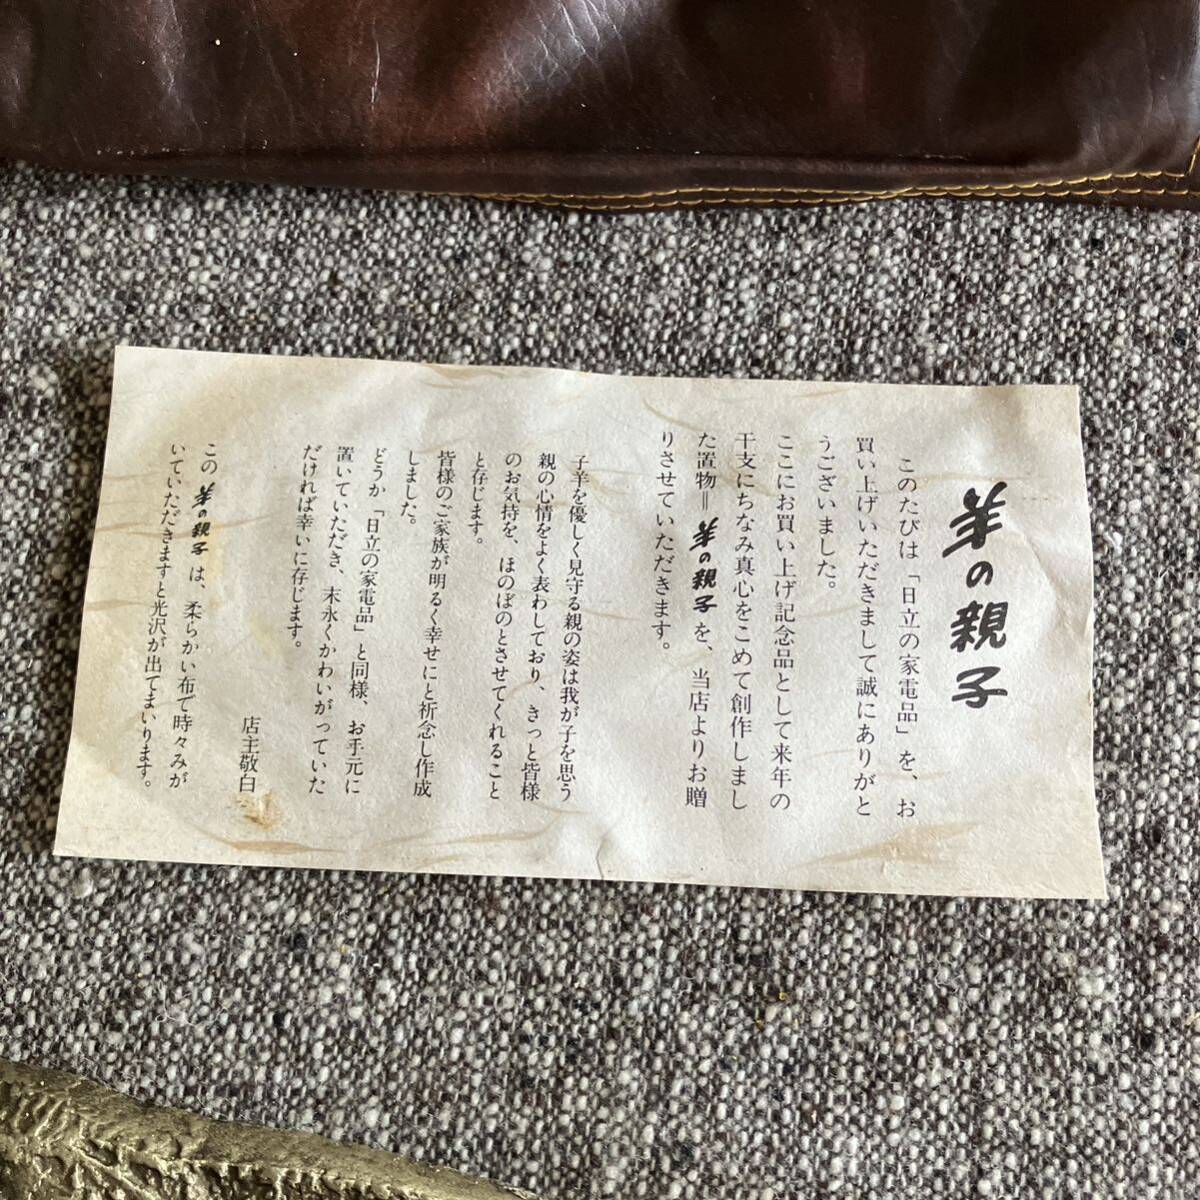 羊の親子
このたびは「日立の家電品」を、お
買い上げいただきまして誠にありがと
うございました。
ここにお買い上げ記念品として来年の
干支にちなみ真心をこめて創作しまし
た置物＝羊の親子を、当店よりお贈
りさせていただきます。
子羊を優しく見守る親の姿は我が子を思う
親の心情をよく表わしており、きっと皆様
のお気持を、ほのぼのとさせてくれること
と存じます。
皆様のご家族が明るく幸せにと祈念し作成
しました。
どうか「日立の家電品」と同様、お手元に
置いていただき、末永くかわいがっていた
だければ幸いに存じます。
店主敬白
この羊の親子は、柔らかい布で時々みが
いていただきますと光沢が出てまいります。